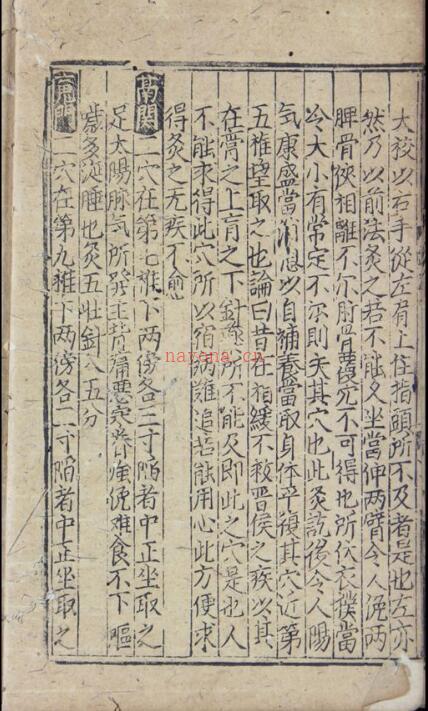 大校以右手從左肩上住指頭所不及者是也左亦
然乃以前法灸之若不能久坐當伸兩臂令人挽兩
胛骨使相離不尔胛骨覆穴不可得也所伏衣襆當
令大小有常定不尔則失其穴也此灸訖後令人陽
氣康盛當消息以自補養當取身体平復其穴近第
五椎望取之也論曰昔在和緩不救晋侯之疾以其
在膏之上肓之下針藥所不能及即此之穴是也人
不能求得此穴所以宿病難追若能用心此方便求
得灸之无疾不愈
膈關二穴在第七椎下兩傍各三寸陷者中正坐取之
足太陽脉氣所發主背痛惡寒脊強俛難食不下嘔
噦多涎唾也灸五壯針入五分
魂門二穴在第九椎下兩傍各三寸陷者中正坐取之
nayona.cn